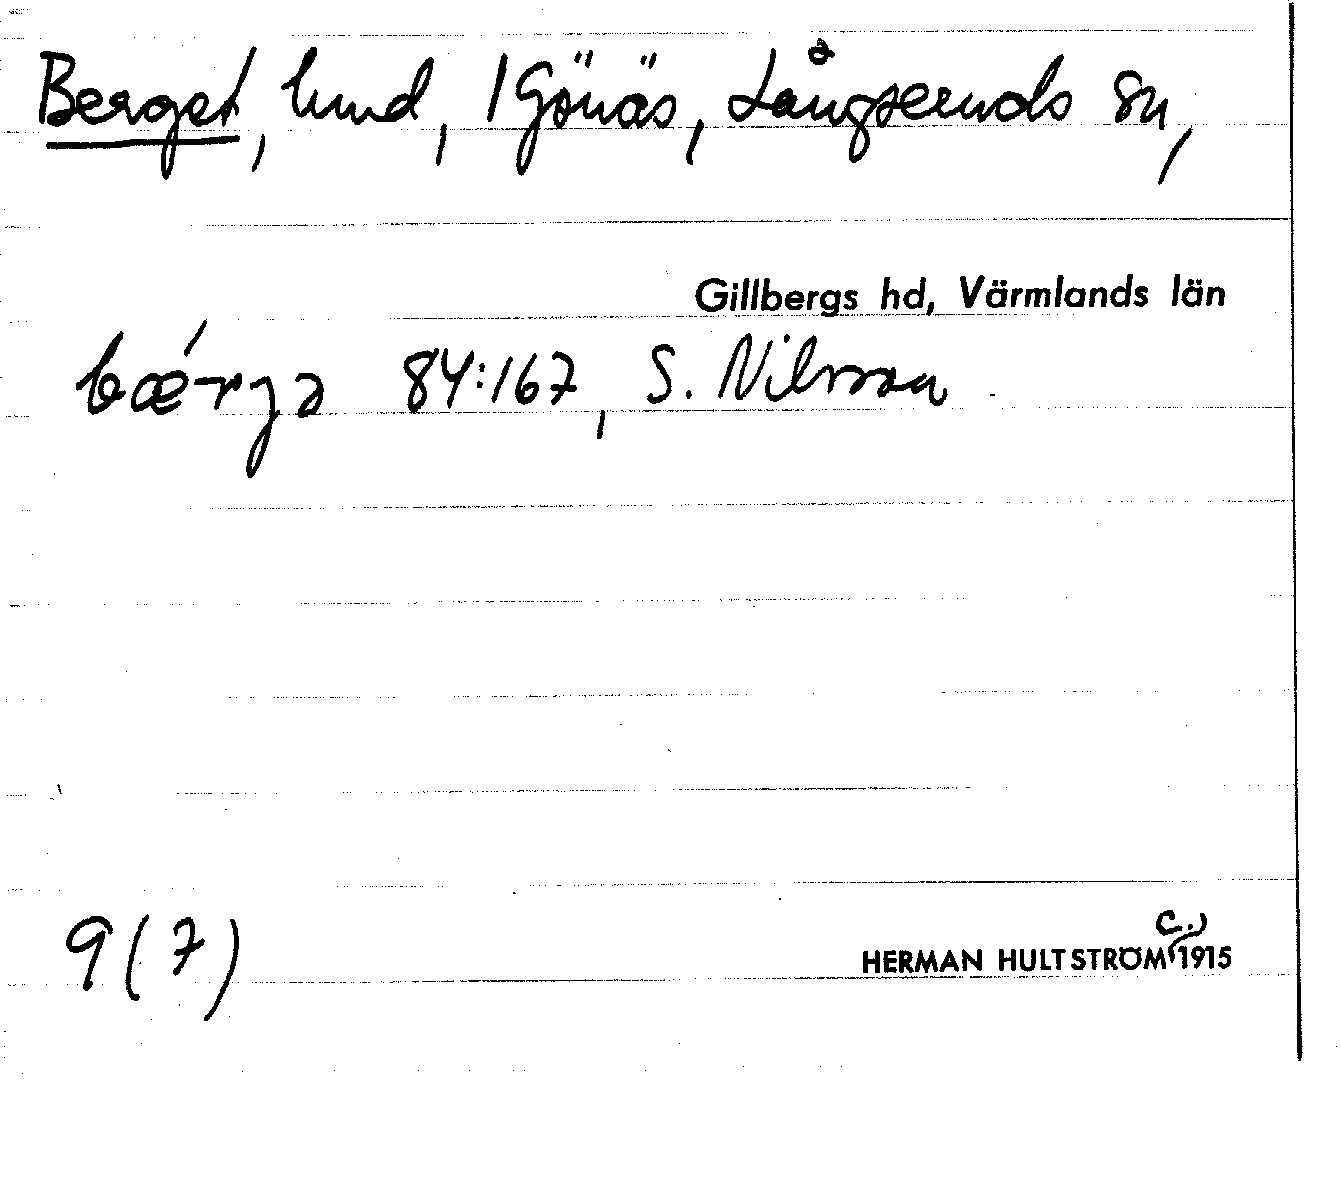 Berget, hmd, 1 Gönäs, Långseruds sn,
Gillbergs hd, Värmlands län
bǽrjə 84:167, S. Nilsson
9(7)
HERMAN HULTSTRÖM c.) 1915